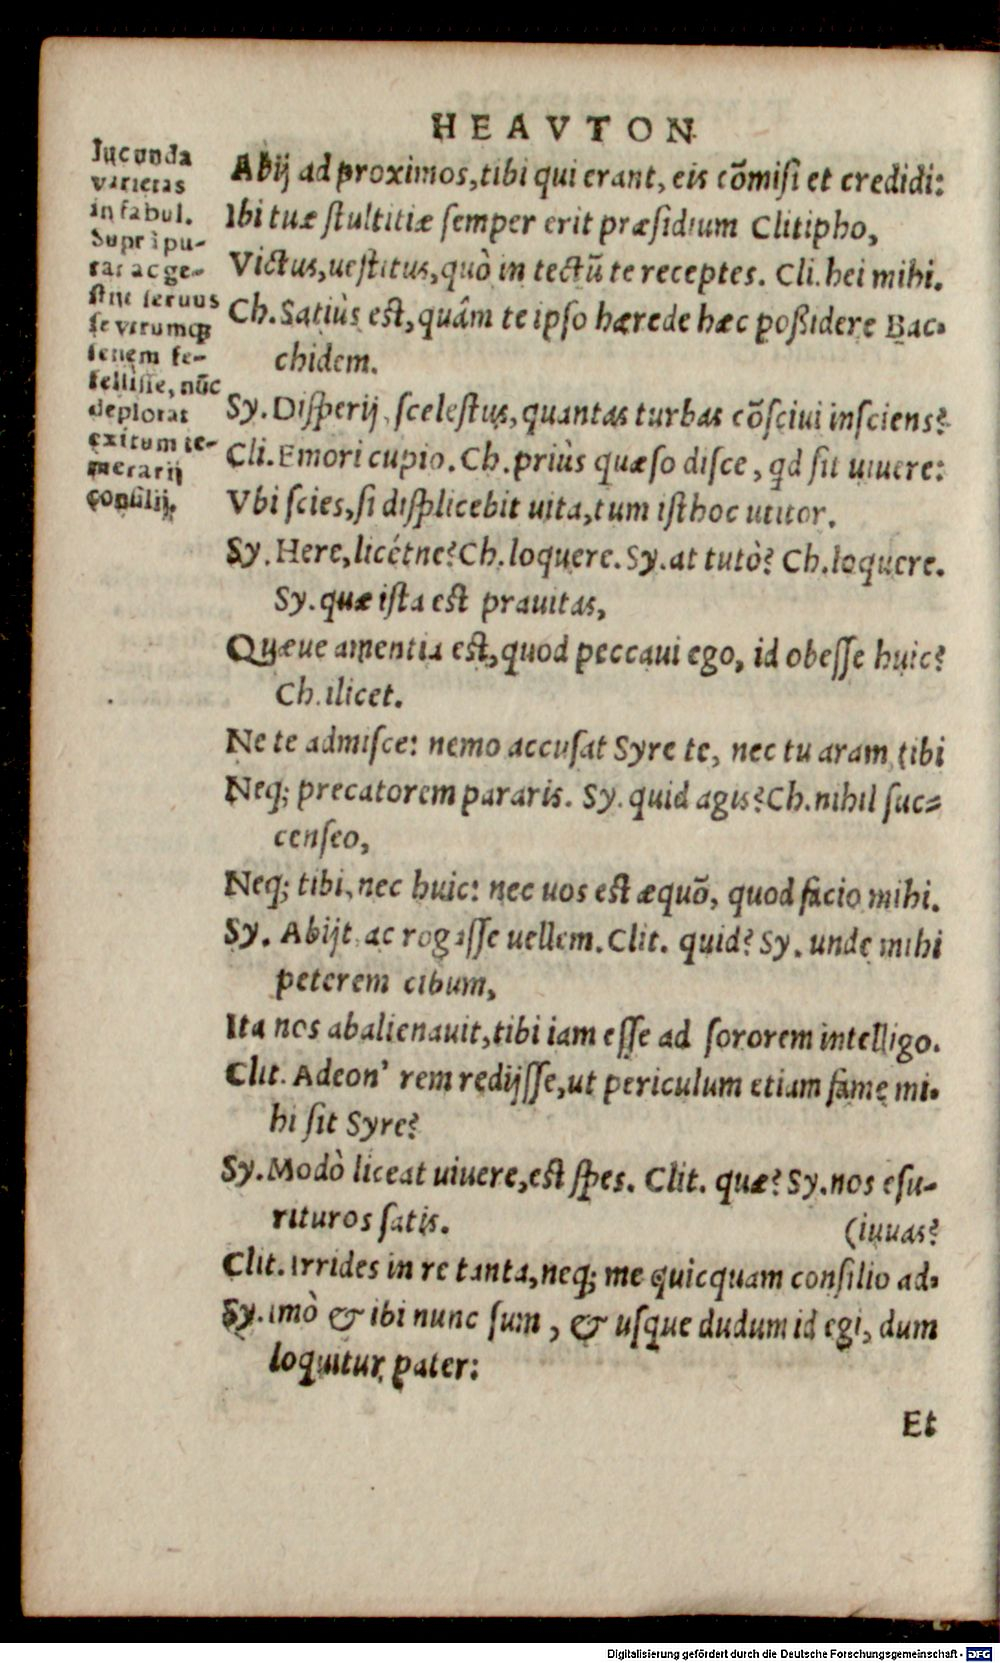 HEAVTON
Iucunda
varietas
in fabul.
Supr ipu-
tat ac ge-
stiit seruus
se vtrumq;
senem fe-
fellisse, nūc
deplorat
exitum te-
merarij
consilij.
Abij ad proximos, tibi qui erant, eis cōmisi et credidi:
Ibi tuæ stultitiæ semper erit præsidium Clitipho,
Victus, uestitus, quò in tectū te receptes. Cli. hei mihi.
Ch. Satiùs est, quâm te ipso hærede hæc poßidere Bac-
chidem.
Sy. Disperij, scelestus, quantas turbas cōsciui insciens?
Cli. Emori cupio. Ch. priùs quæso disce, qd sit uiuere:
Vbi scies, si displicebit uita, tum isthoc utitor.
Sy. Here, licétne? Ch. loquere. Sy. at tutò? Ch. loquere.
Sy. quæ ista est prauitas,
Quæue amentia est, quod peccaui ego, id obesse huic?
Ch. ilicet.
Ne te admisce: nemo accusat Syre te, nec tu aram tibi
Neq; precatorem pararis. Sy. quid agis? Ch. nihil suc-
censeo,
Neq; tibi, nec huic: nec uos est æquō, quod facio mihi.
Sy. Abijt, ac rogasse uellem. Clit. quid? Sy. unde mihi
peterem cibum,
Ita nos abalienauit, tibi iam esse ad sororem intelligo.
Clit. Adeon' rem redijsse, ut periculum etiam fame mi-
hi sit Syre?
Sy. Modò liceat uiuere, est spes. Clit. quæ? Sy. nos esu-
rituros satis. (iuuas?
Clit. Irrides in re tanta, neq; me quicquam consilio ad-
Sy. imò & ibi nunc sum, & usque dudum id egi, dum
loquitur pater:
Et
Digitalisierung gefördert durch die Deutsche Forschungsgemeinschaft - DFG